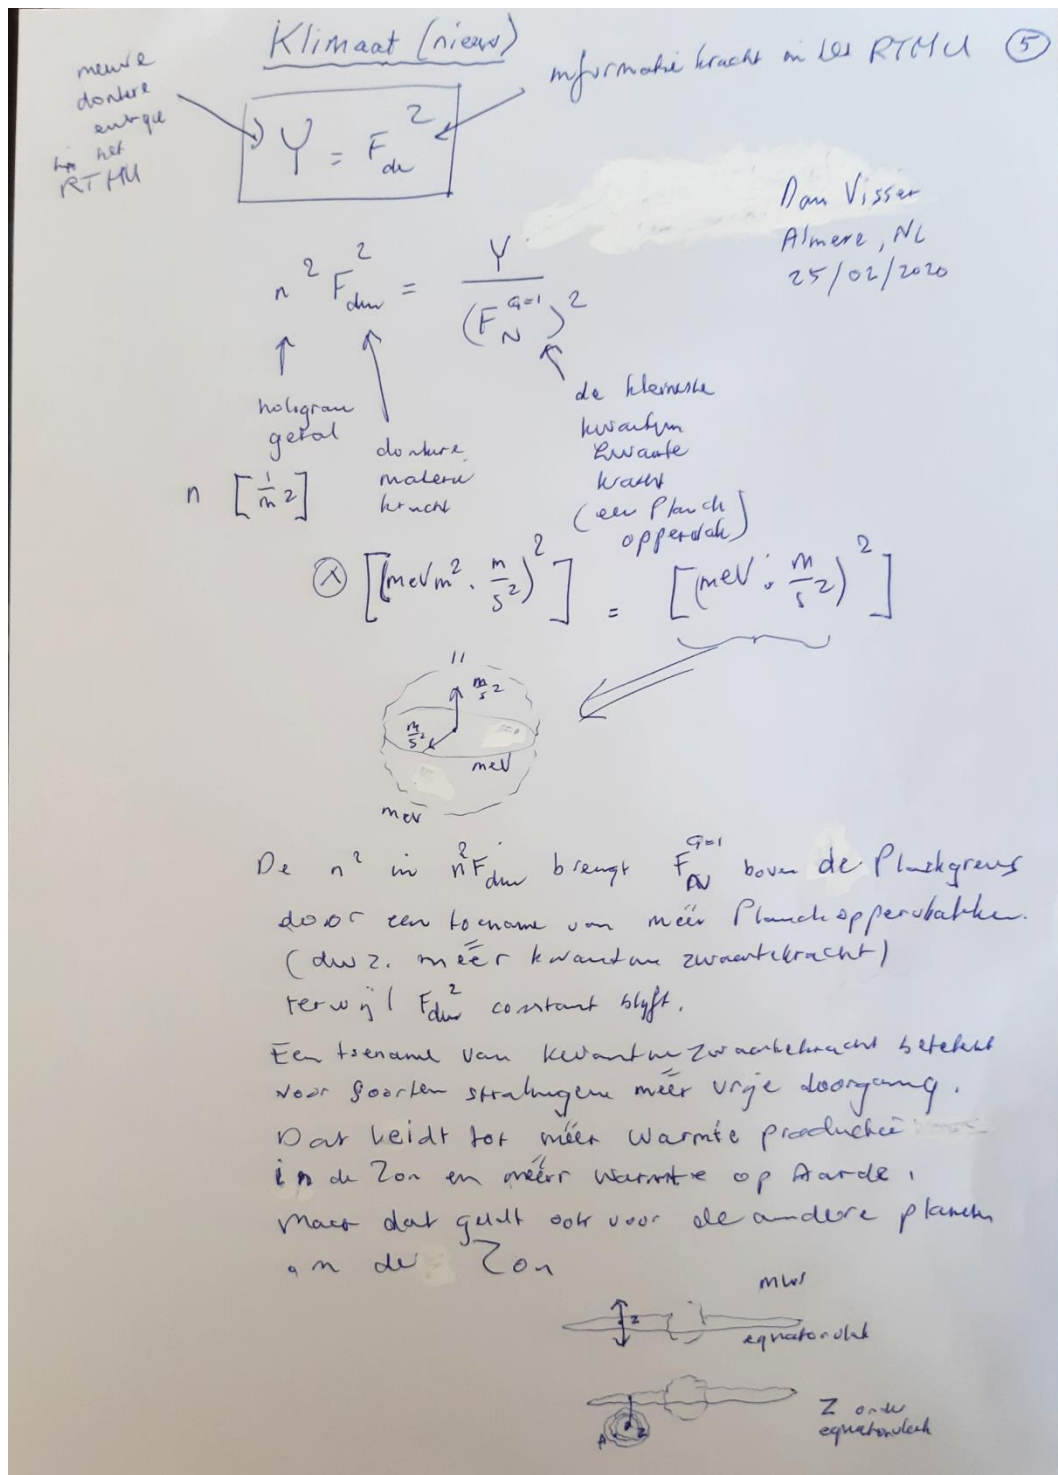 Klimaat (nieuw)
informatie kracht in het RTHU
5
nieuwe
donkere
energie
in het
RTHU
Y = F_de^2
Dan Visser
Almere, NL
25/02/2020
n^2 F_dm^2 = Y / (F_N^{G=1})^2
hologram
getal
donkere
materie
kracht
de kleinste
kwantum
zwaarte
kracht
(een Planck
oppervlak)
n [1/m^2]
ⓧ [(meVm^2 · m/s^2)^2] = [(meV · m/s^2)^2]
m/s^2
m/s^2
meV
meV
De n^2 in n^2F_dm brengt F_N^{G=1} boven de Planckgrens
door een toename van méér Planckoppervlakken.
(dwz. méér kwantum zwaartekracht)
terwijl F_dm^2 constant blijft.
Een toename van kwantumzwaartekracht betekent
voor soorten stralingen méér vrije doorgang.
Dat leidt tot méér warmte productie
in de Zon en méér warmte op Aarde,
Maar dat geldt ook voor de andere planeten
om de Zon
MWS
Z
equatorvlak
A
Z
Z onder
equatorvlak